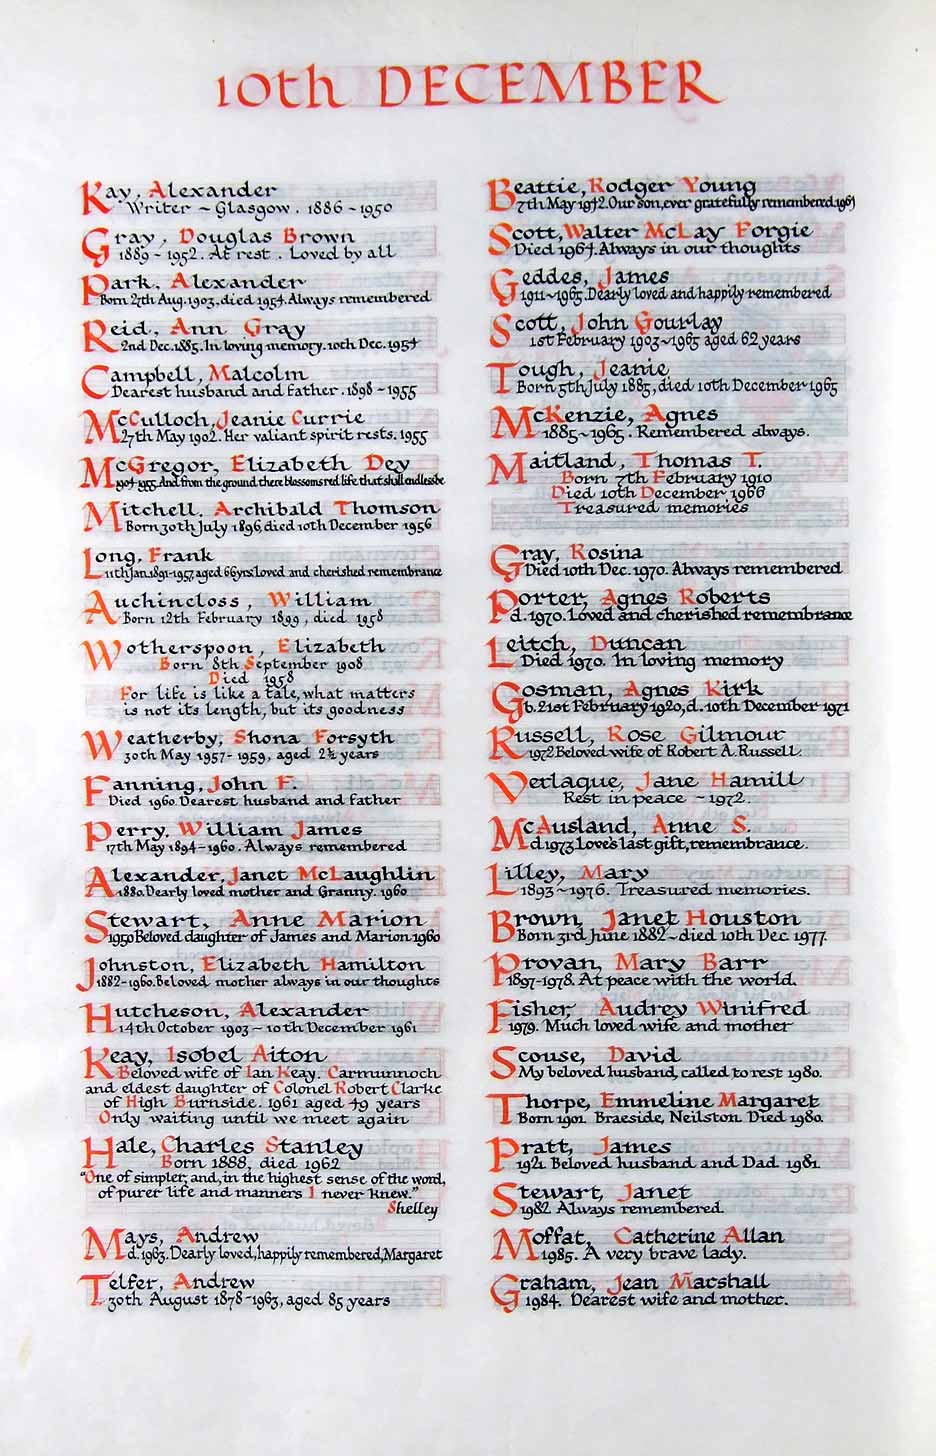 10th DECEMBER
Kay, Alexander
Writer ~ Glasgow. 1886 ~ 1950
Gray, Douglas Brown
1889 ~ 1952. At rest. Loved by all
Park, Alexander
Born 27th Aug. 1903, died 1954. Always remembered
Reid, Ann Gray
2nd Dec. 1885. In loving memory. 10th Dec. 1954
Campbell, Malcolm
Dearest husband and father. 1898 ~ 1955
McCulloch, Jeanie Currie
27th May 1902. Her valiant spirit rests. 1955
McGregor, Elizabeth Dey
1904-1955. And from the ground there blossoms red life that shall endless be
Mitchell, Archibald Thomson
Born 30th July 1896, died 10th December 1956
Long, Frank
11th Jan. 1891-1957, aged 66 yrs. loved and cherished remembrance
Auchincloss, William
Born 12th February 1899, died 1958
Wotherspoon, Elizabeth
Born 8th September 1908
Died 1958
For life is like a tale, what matters
is not its length, but its goodness
Weatherby, Shona Forsyth
30th May 1957-1959, aged 2½ years
Fanning, John F.
Died 1960. Dearest husband and father
Perry, William James
17th May 1894-1960. Always remembered
Alexander, Janet McLaughlin
1880. Dearly loved mother and Granny. 1960
Stewart, Anne Marion
1950 Beloved daughter of James and Marion 1960
Johnston, Elizabeth Hamilton
1882-1960. Beloved mother always in our thoughts
Hutcheson, Alexander
14th October 1903 ~ 10th December 1961
Keay, Isobel Aiton
Beloved wife of Ian Keay. Carmunnoch
and eldest daughter of Colonel Robert Clarke
of High Burnside. 1961 aged 49 years
Only waiting until we meet again
Hale, Charles Stanley
Born 1888, died 1962
"One of simpler, and, in the highest sense of the word,
of purer life and manners I never knew."
Shelley
Mays, Andrew
d. 1963. Dearly loved, happily remembered, Margaret
Telfer, Andrew
30th August 1878-1963, aged 85 years
Beattie, Rodger Young
7th May 1942. Our son, ever gratefully remembered. 1963
Scott, Walter McLay Forgie
Died 1964. Always in our thoughts
Geddes, James
1911~1965. Dearly loved and happily remembered
Scott, John Gourlay
1st February 1903~1965 aged 62 years
Tough, Jeanie
Born 5th July 1885, died 10th December 1965
McKenzie, Agnes
1885~1965. Remembered always.
Maitland, Thomas T.
Born 7th February 1910
Died 10th December 1966
Treasured memories
Gray, Rosina
Died 10th Dec. 1970. Always remembered
Porter, Agnes Roberts
d. 1970. Loved and cherished remembrance
Leitch, Duncan
Died 1970. In loving memory
Gosman, Agnes Kirk
b. 21st February 1920, d. 10th December 1971
Russell, Rose Gilmour
1972 Beloved wife of Robert A. Russell.
Verlaque, Jane Hamill
Rest in peace ~ 1972.
McAusland, Anne S.
d 1973 Love's last gift, remembrance.
Lilley, Mary
1893~1976. Treasured memories.
Brown, Janet Houston
Born 3rd June 1882~died 10th Dec. 1977.
Provan, Mary Barr
1897-1978. At peace with the world.
Fisher, Audrey Winifred
1979. Much loved wife and mother
Scouse, David
My beloved husband, called to rest 1980.
Thorpe, Emmeline Margaret
Born 1901. Braeside, Neilston. Died 1980.
Pratt, James
1921. Beloved husband and Dad. 1981.
Stewart, Janet
1982. Always remembered.
Moffat, Catherine Allan
1985. A very brave lady.
Graham, Jean Marshall
1984. Dearest wife and mother.